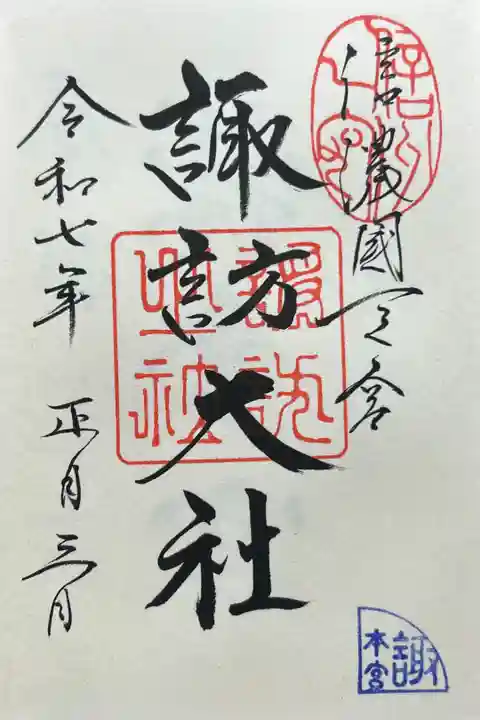 信濃國一之宮
諏訪大社
令和七年 正月三日
諏
本宮